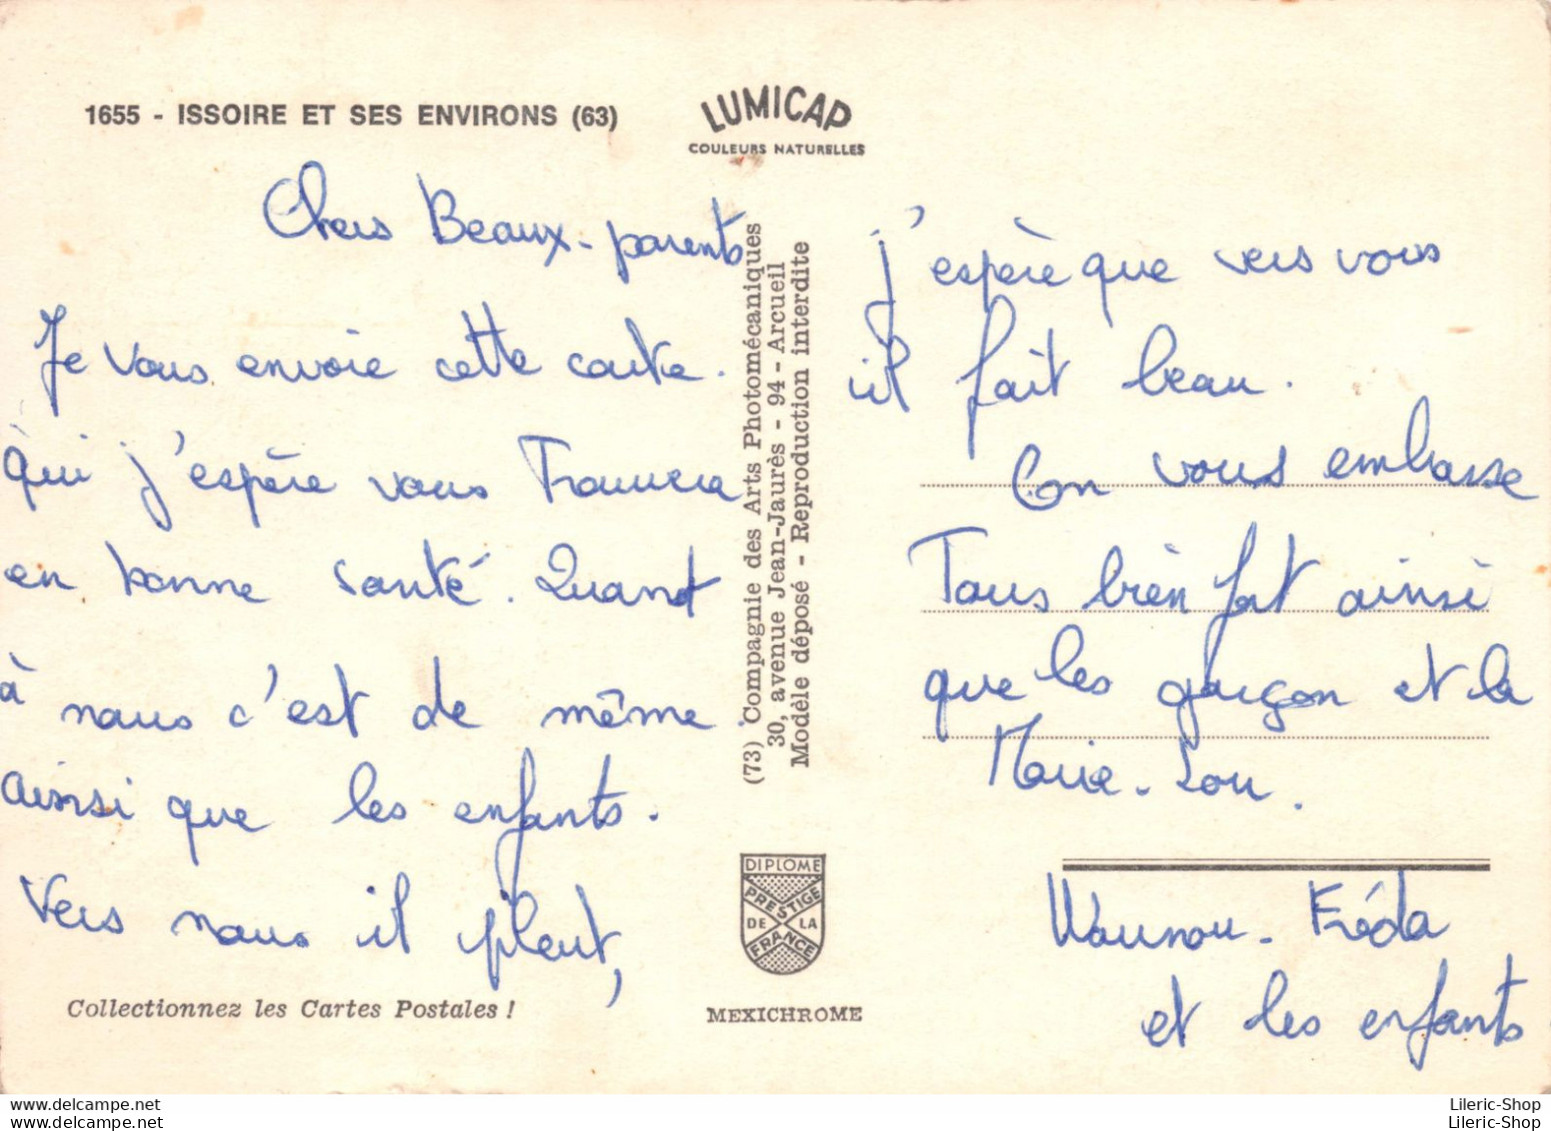 1655 - ISSOIRE ET SES ENVIRONS (63)
LUMICAP
COULEURS NATURELLES
Chers Beaux-parents
Je vous envoie cette carte.
qui j'espère vous Trouvera
en bonne santé. Quand
à nous c'est de même.
ainsi que les enfants.
Vers nous il pleut,
(73) Compagnie des Arts Photomécaniques
30, avenue Jean-Jaurès - 94 - Arcueil
Modèle déposé - Reproduction interdite
j'espère que vers vous
il fait beau.
On vous embrasse
Tous bien fort ainsi
que les garçon et la
Marie-Lou.
Fréda
et les enfants
DIPLOME
PRESTIGE
DE LA
FRANCE
Collectionnez les Cartes Postales !
MEXICHROME
www.delcampe.net
www.delcampe.net
Lileric-Shop
Lileric-Shop